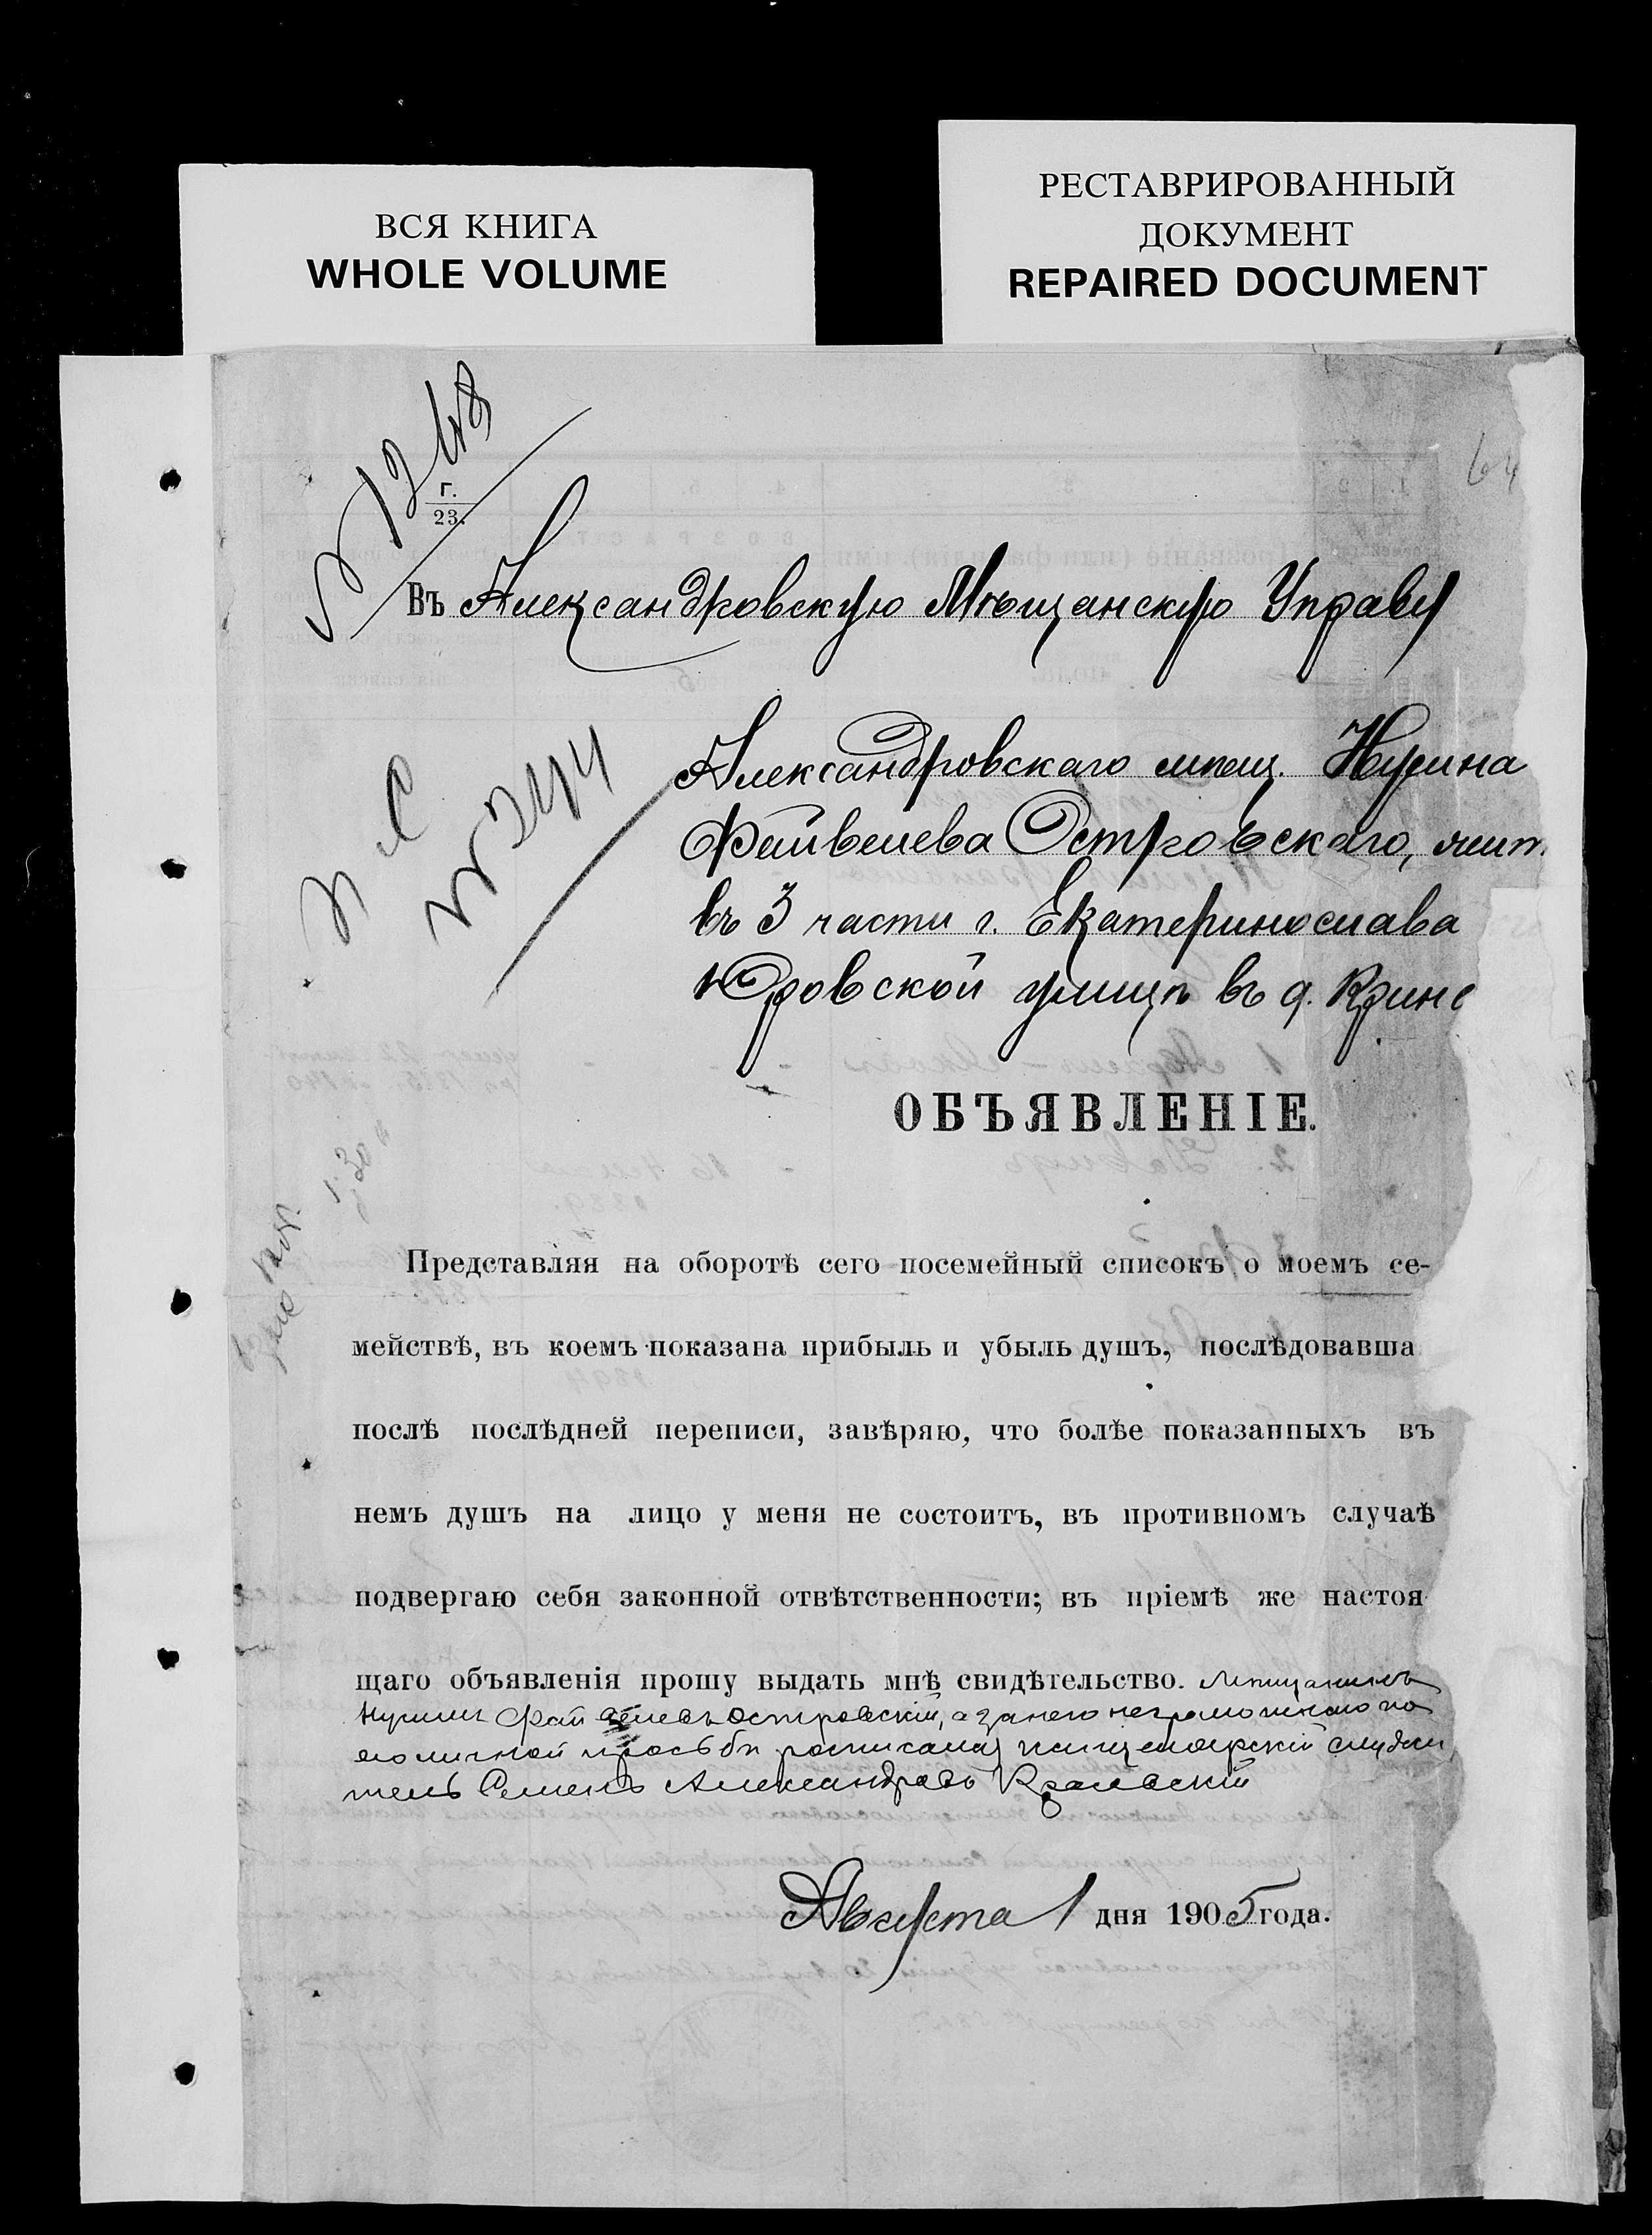 ВСЯ КНИГА
WHOLE VOLUME
РЕСТАВРИРОВАННЫЙ
ДОКУМЕНТ
REPAIRED DOCUMENT
№ 1248
64
г.
23.
Въ Александровскую Мѣщанскую Управу
Александровскаго мѣщ. Нухима
Файвелева Островскаго, жит.
въ 3 части г. Екатеринослава
Юровской улицѣ въ д.
П С
№ 244
ОБЪЯВЛЕНІЕ.
Представляя на оборотѣ сего посемейный списокъ о моемъ се-
мействѣ, въ коемъ показана прибыль и убыль душъ, послѣдовавша
послѣ послѣдней переписи, завѣряю, что болѣе показанныхъ въ
немъ душъ на лицо у меня не состоитъ, въ противномъ случаѣ
подвергаю себя законной отвѣтственности; въ пріемѣ же настоя
щаго объявленія прошу выдать мнѣ свидѣтельство. Мѣщанинъ
Нухимъ Файвелевъ Островскій, а за него неграмотнаго по
его личной просьбѣ росписался канцелярскій служи
тель Семенъ Александровъ Краевскій
Августа 1 дня 1905 года.